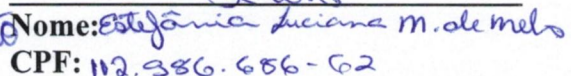 Nome: Estefânia Luciana M. de Melo
CPF: 112.986.686-62